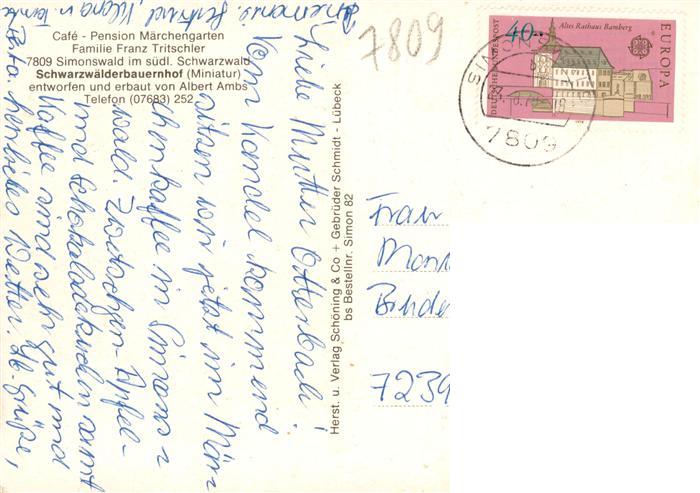 Café - Pension Märchengarten
Familie Franz Tritschler
7809 Simonswald im südl. Schwarzwald
Schwarzwälderbauernhof (Miniatur)
entworfen und erbaut von Albert Ambs
Telefon (07683) 252
Liebe Mutter Otterbach!
Vom Kandel kommend
sitzen wir jetzt im Mär=
chenkaffee in Simons=
wald. Zwetschgen-Apfel-
und Schokoladekuchen samt
Kaffee sind sehr gut und
herrliches Wetter. Hb. Grüße,
Herst. u. Verlag Schöning & Co + Gebrüder Schmidt - Lübeck
bs Bestellnr. Simon 82
7809
DEUTSCHE BUNDESPOST
40
Altes Rathaus Bamberg
EUROPA
7809
Frau
7239